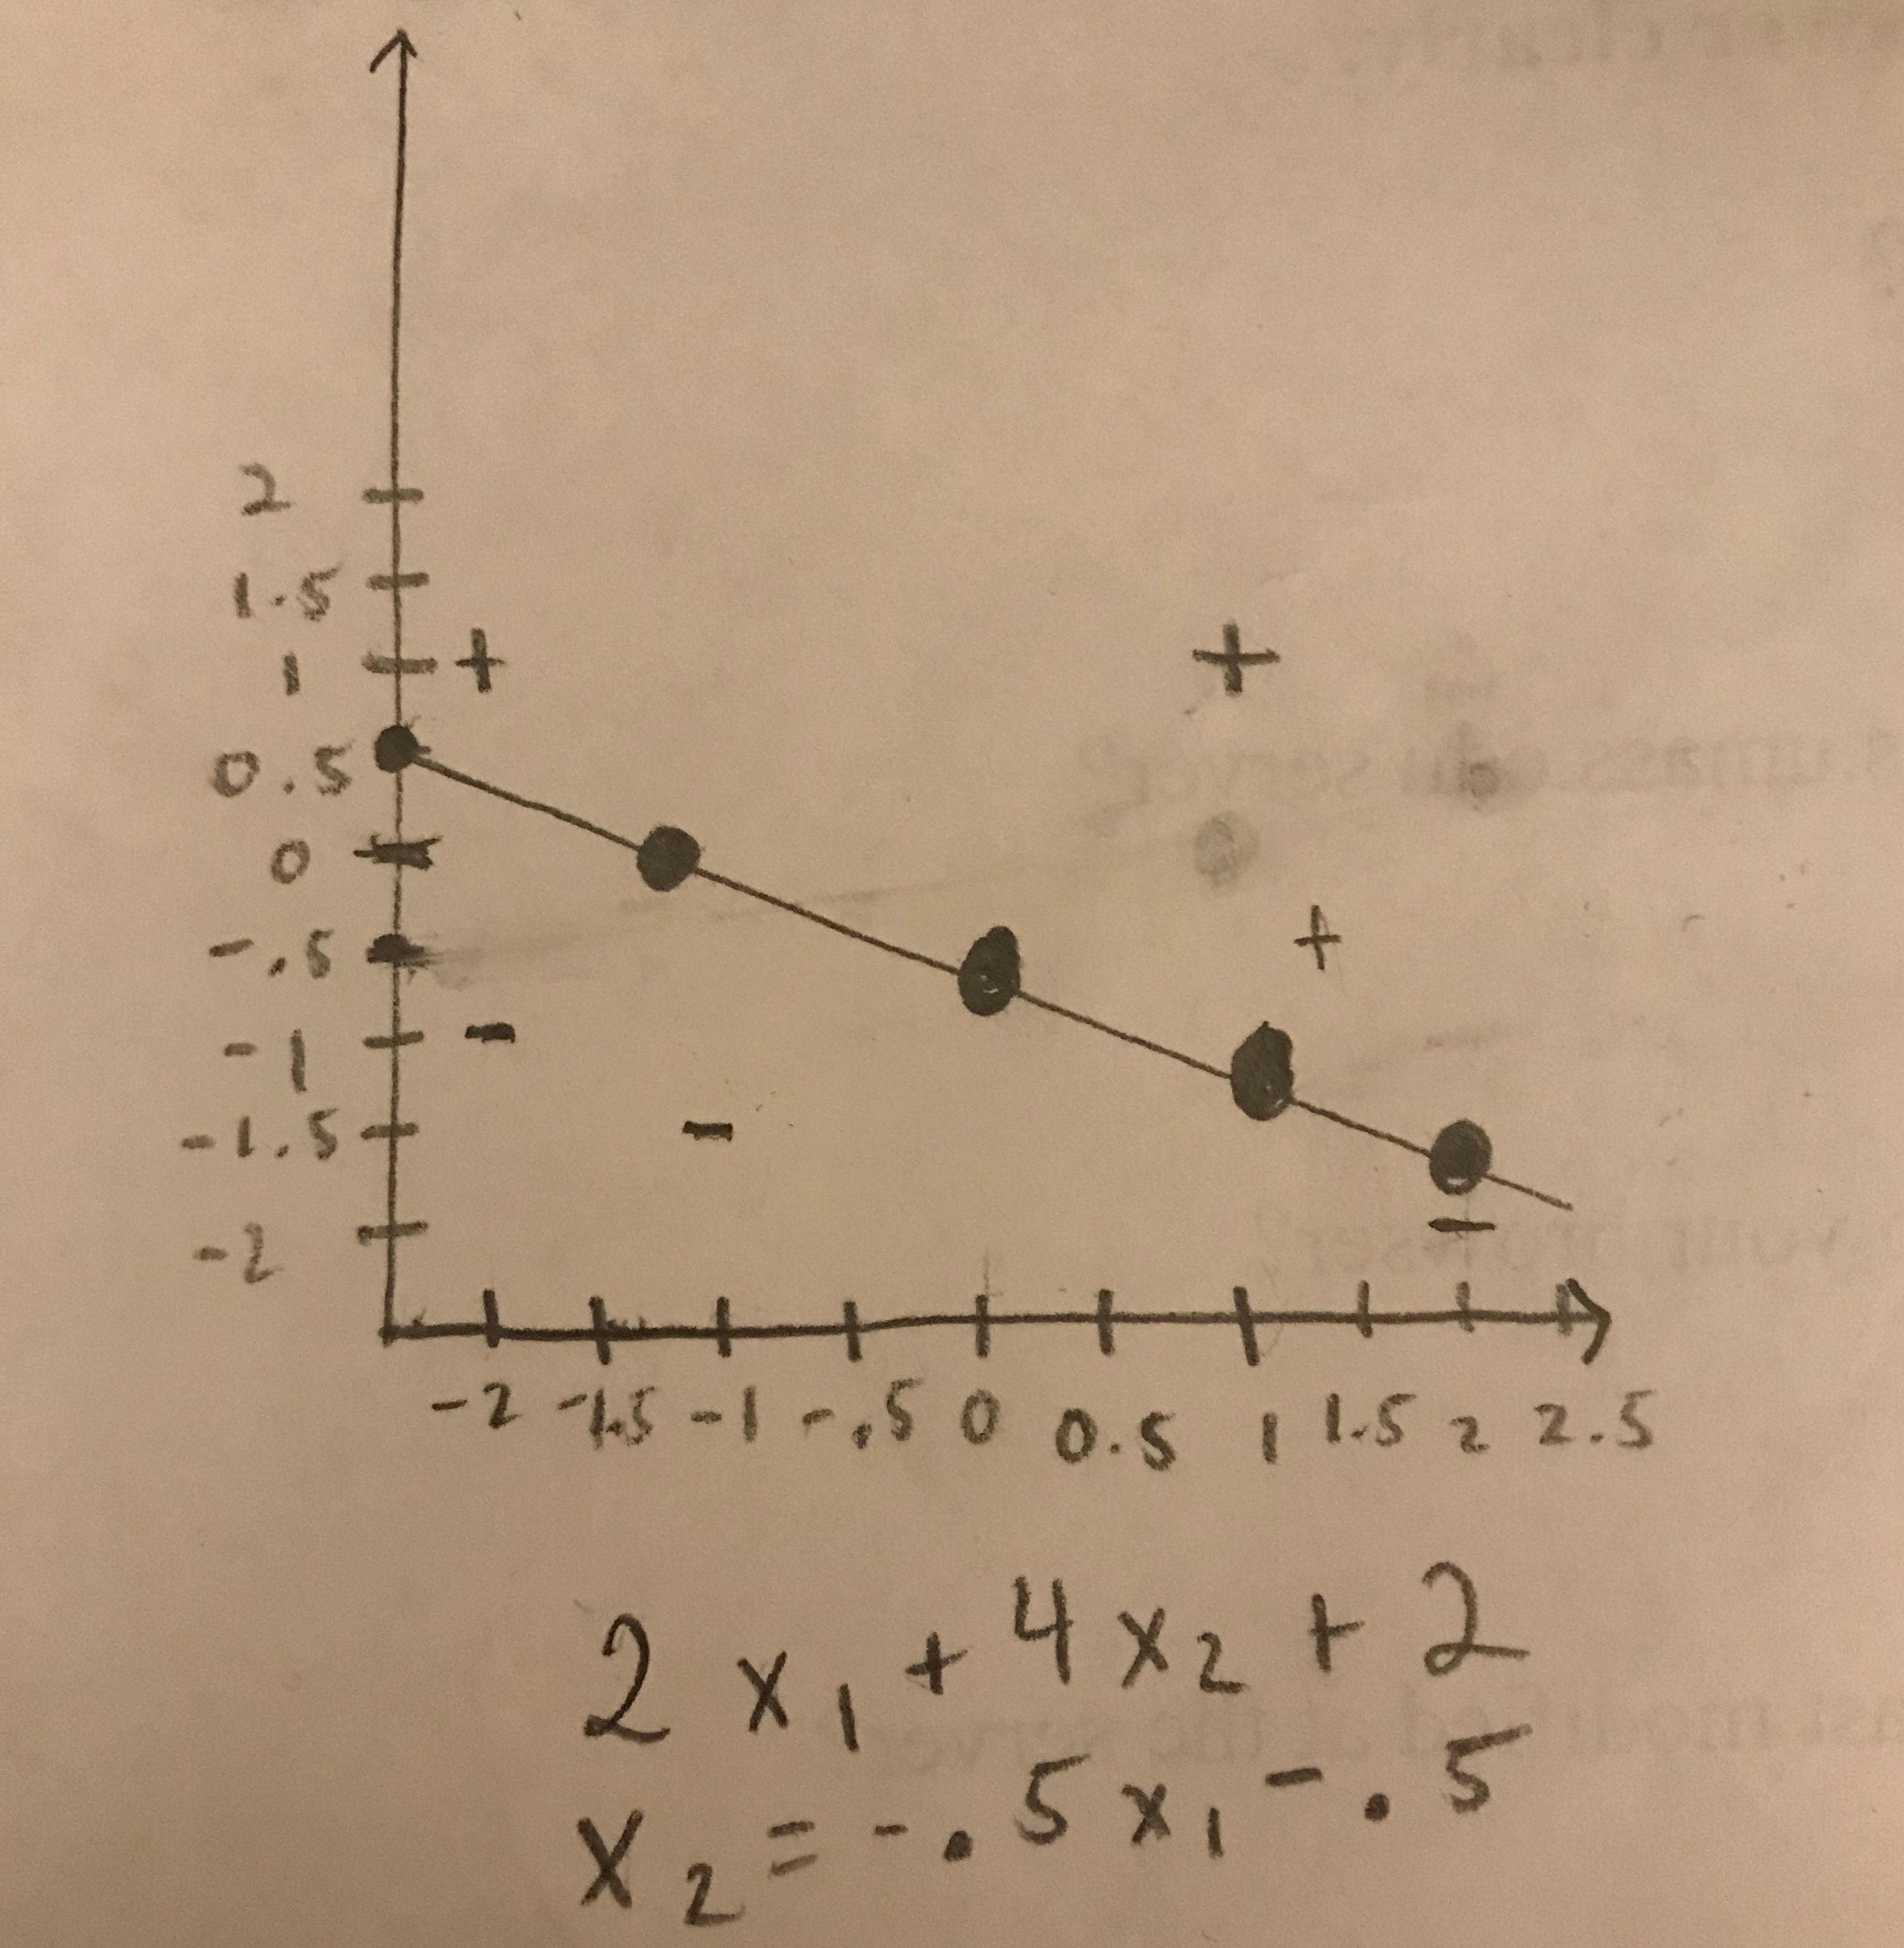 2
1.5
1 + +
0.5
0
-.5 +
-1 -
-1.5 -
-2 -
-2 -1.5 -1 -.5 0 0.5 1 1.5 2 2.5
2 x₁ + 4 x₂ + 2
x₂ = -.5 x₁ - .5